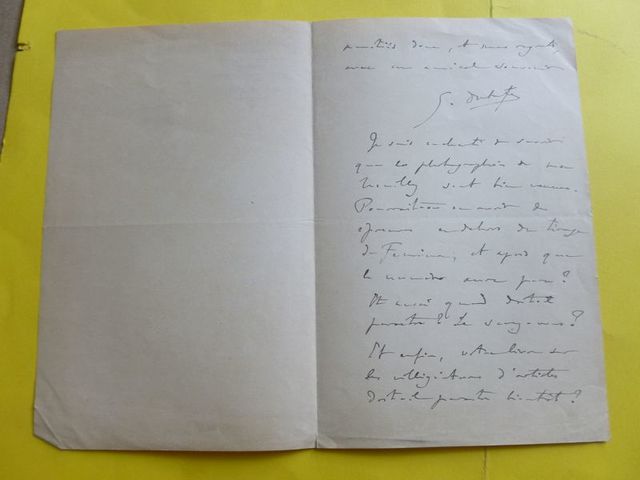 donc, et mes regrets,
avec un amical souvenir
G. Dubufe
Je suis enchanté de savoir
que les photographies de mon
Neuilly sont bien venues.
Pourrait-on en avoir des
épreuves en dehors du tirage
de Femina, et après que
le numéro aura paru ?
Et aussi quand doit-il
paraître ? Le savez-vous ?
Et enfin, votre livre sur
les villégiatures d'artistes
doit-il paraître bientôt ?